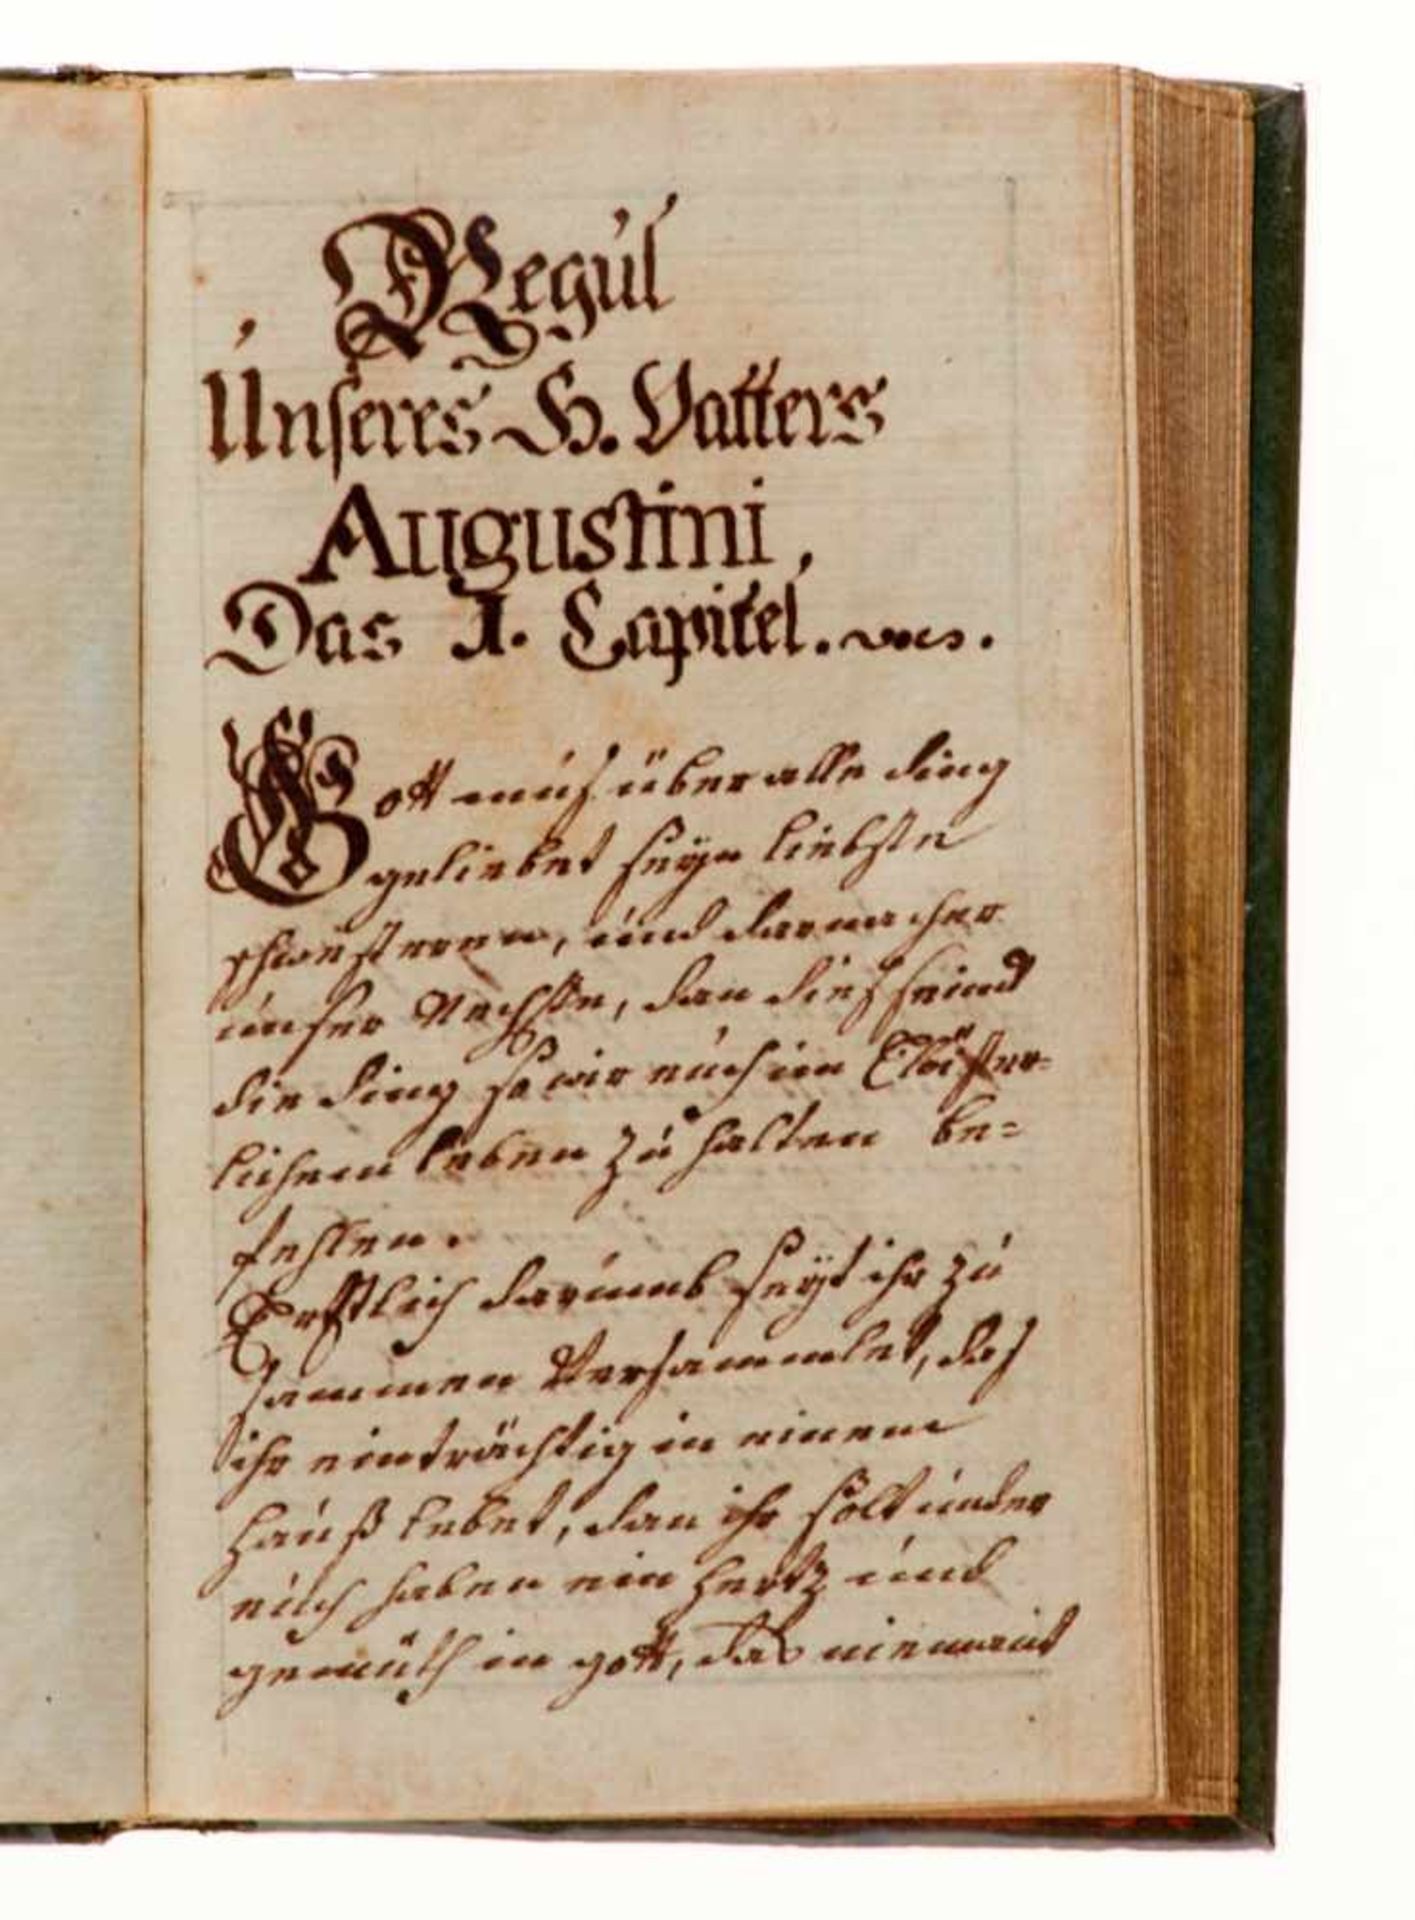 Regul
Unseres H. Vatters
Augustini,
Das I. Capitel.
Gott muß über alle ding
geliebet seyn liebste
schwesteren, und darnacher
unser Nechste, dan dieß seind
die ding so wir euch im Clöster=
lichem leben zu halten be=
fehlen.
Erstlich darumb seyt ihr zu
samen Versammlet, das
ihr einträchtig in einem
hauß lebet, dan ihr solt under
euch haben ein hertz und
gemüth in gott, das niemant